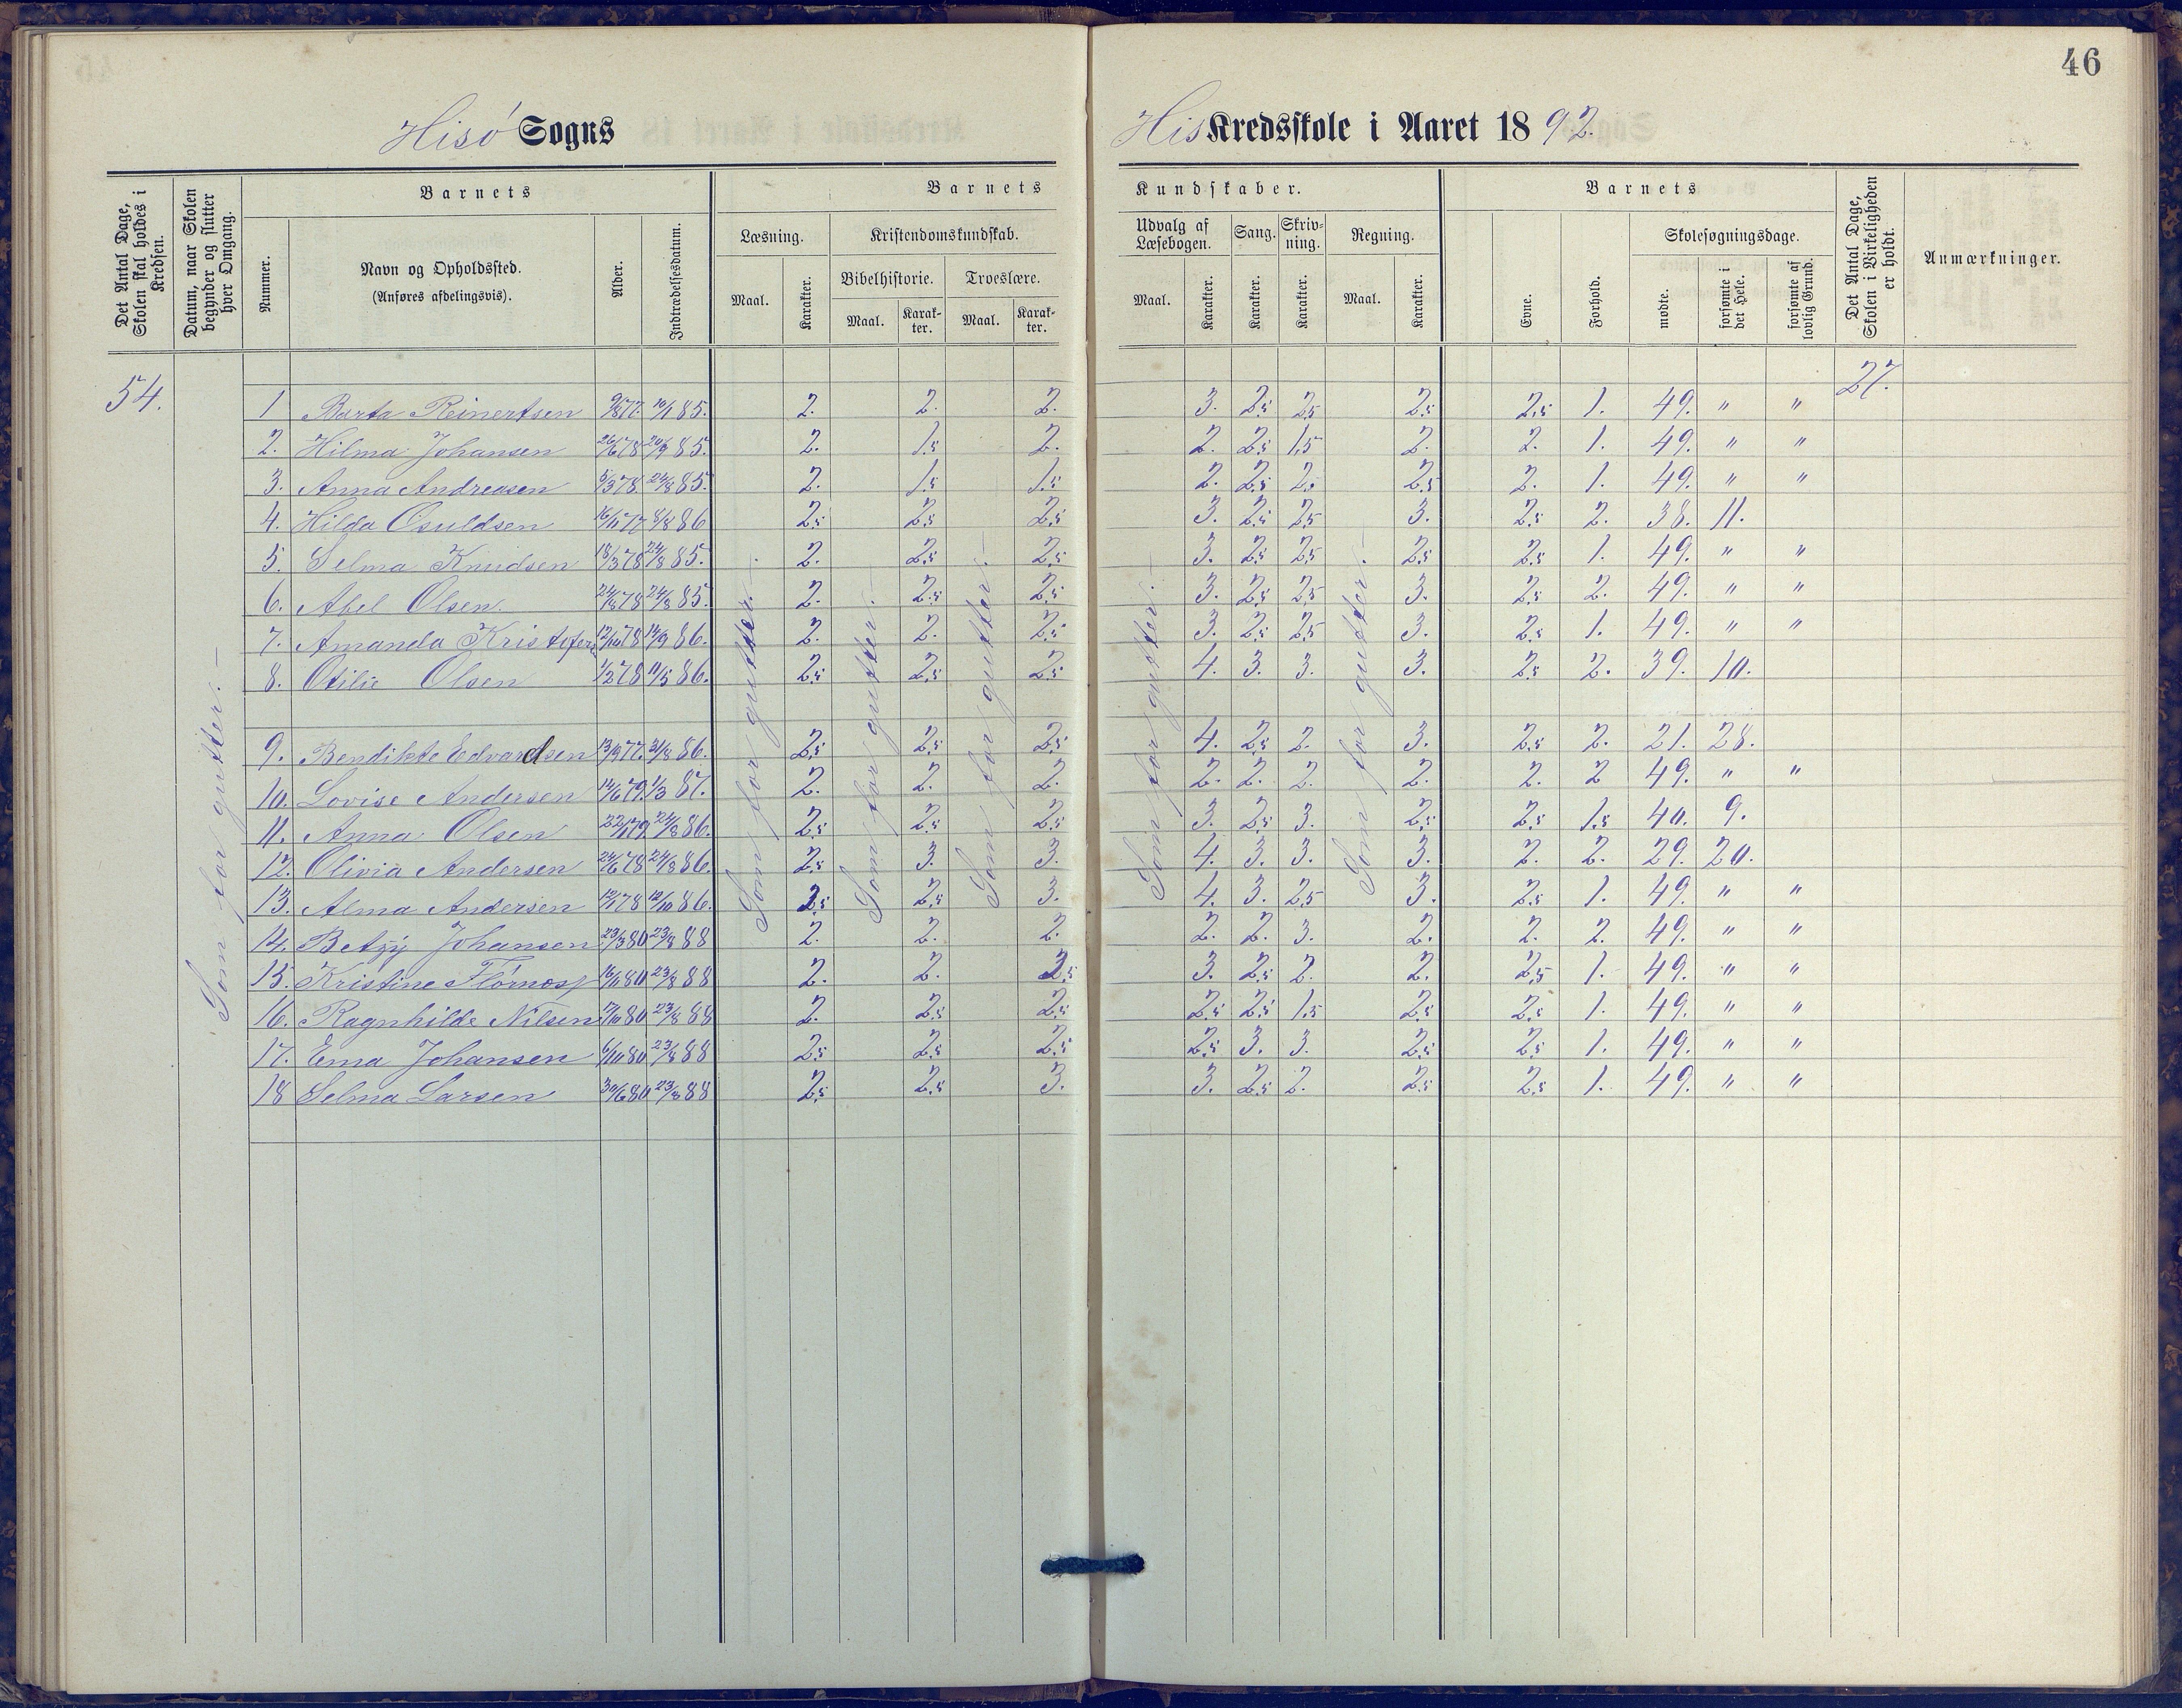 46
Hisö Sogns
His Kredsskole i Aaret 1892.
Det Antal Dage, Skolen skal holdes i Kredsen.
Datum, naar Skolen begynder og slutter hver Omgang.
Barnets
Nummer.
Navn og Opholdssted.
(Anføres afdelingsvis).
Alder.
Indtrædelsesdatum.
Barnets Kundskaber.
Læsning.
Kristendomskundskab.
Bibelhistorie.
Troeslære.
Maal. Karakter. Maal. Karakter. Maal. Karakter.
Udvalg af Læsebogen.
Sang.
Skrivning.
Regning.
Maal. Karakter. Karakter. Karakter. Maal. Karakter.
Barnets
Evne.
Forhold.
Skolesøgningsdage.
mødte.
forsømte i det Hele.
forsømte af lovlig Grund.
Det Antal Dage, Skolen i Virkeligheden er holdt.
Anmærkninger.
54. 27.
1 Berta Reinertsen 9/8 77. 10/1 85. 2. 2. 2. 3. 2,5 2,5 2,5 2,5 1. 49. " "
2. Hilma Johansen 26/6 78 20/9 85. 2. 1,5 2. 2. 2,5 1,5 2. 2. 1. 49. " "
3. Anna Andreasen 5/3 78. 24/8 85. 2. 1,5 1,5 2. 2,5 2,5 2,5 2. 1. 49. " "
4. Hilda Osuldsen 16/11 77 8/8 86 2,5 2,5 2,5 3. 2,5 2,5 3. 2,5 2. 38. 11.
5. Selma Knudsen 18/3 78 24/8 85. 2. 2,5 2,5 3. 2,5 2,5 2,5 2,5 1. 49. " "
6. Abel Olsen. 24/8 78 24/8 85. 2. 2,5 2,5 3. 2,5 2,5 3. 2,5 2. 49. " "
7. Amanda Kristofers 12/10 78 14/9 86. 2. 2. 2,5 3. 2,5 2,5 3. 2,5 1. 49. " "
8. Otilie Olsen 1/2 78 11/5 86. 2,5 2,5 2,5 4. 3. 3. 3. 2,5 2. 39. 10.
9. Bendikte Edvardsen 13/9 77. 31/8 86. 2,5 2,5 2,5 4. 2,5 2. 3. 2,5 2. 21. 28.
10. Lovise Andersen 14/6 79. 1/3 87. 2. 2. 2. 2. 2. 2. 2. 2. 2 49. " "
11. Anna Olsen 22/1 79. 24/8 86. 2,5 2,5 2,5 3. 2,5 3. 2,5 2,5 1,5 40. 9.
12. Olivia Andersen 24/6 78 24/8 86. 2,5 3. 3. 4. 3. 3. 3. 2. 2. 29. 20.
13. Alma Andersen 12/1 78 12/10 86. 2,5 2,5 3. 4. 3. 2,5 3. 2,5 1. 49. " "
14. Betzy Johansen 23/3 80 23/8 88 2. 2. 2. 2. 2. 3. 2. 2. 2. 49. " "
15. Kristine 16/11 80 23/8 88 2. 2. 2,5 3. 2,5 2. 2. 2,5 1. 49. " "
16. Ragnhilde Nilsen 17/10 80 23/8 88 2. 2,5 2,5 2,5 2,5 1,5 2,5 2,5 1. 49. " "
17. Ema Johansen 6/10 80 23/8 88 2,5 2,5 2,5 2,5 3. 3. 2,5 2,5 1. 49. " "
18 Selma Larsen 30/6 80 23/8 88 2,5 2,5 3. 3. 2,5 2. 2,5 2,5 1. 49. " "
Som for gutter. –
Som for gutter. –
Som for gutter. –
Som for gutter. –
Som for gutter. –
Som for gutter. –